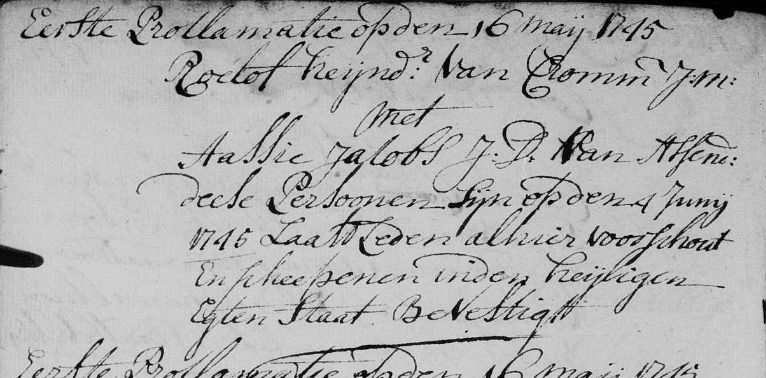 Eerste Procllamatie op den 16 maij 1745
Roelof heijnd:r Van Cromm J:m:
Met
Aassie Jacobs J:D: Van Assend:
deese Persoonen Sijn op den 4 Junij
1745 Laast Leden alhier Voor schout
En scheepenen inden heijligen
Egten Staat Bevestigt
Eerste Procllamatie op den 16 maij 1745